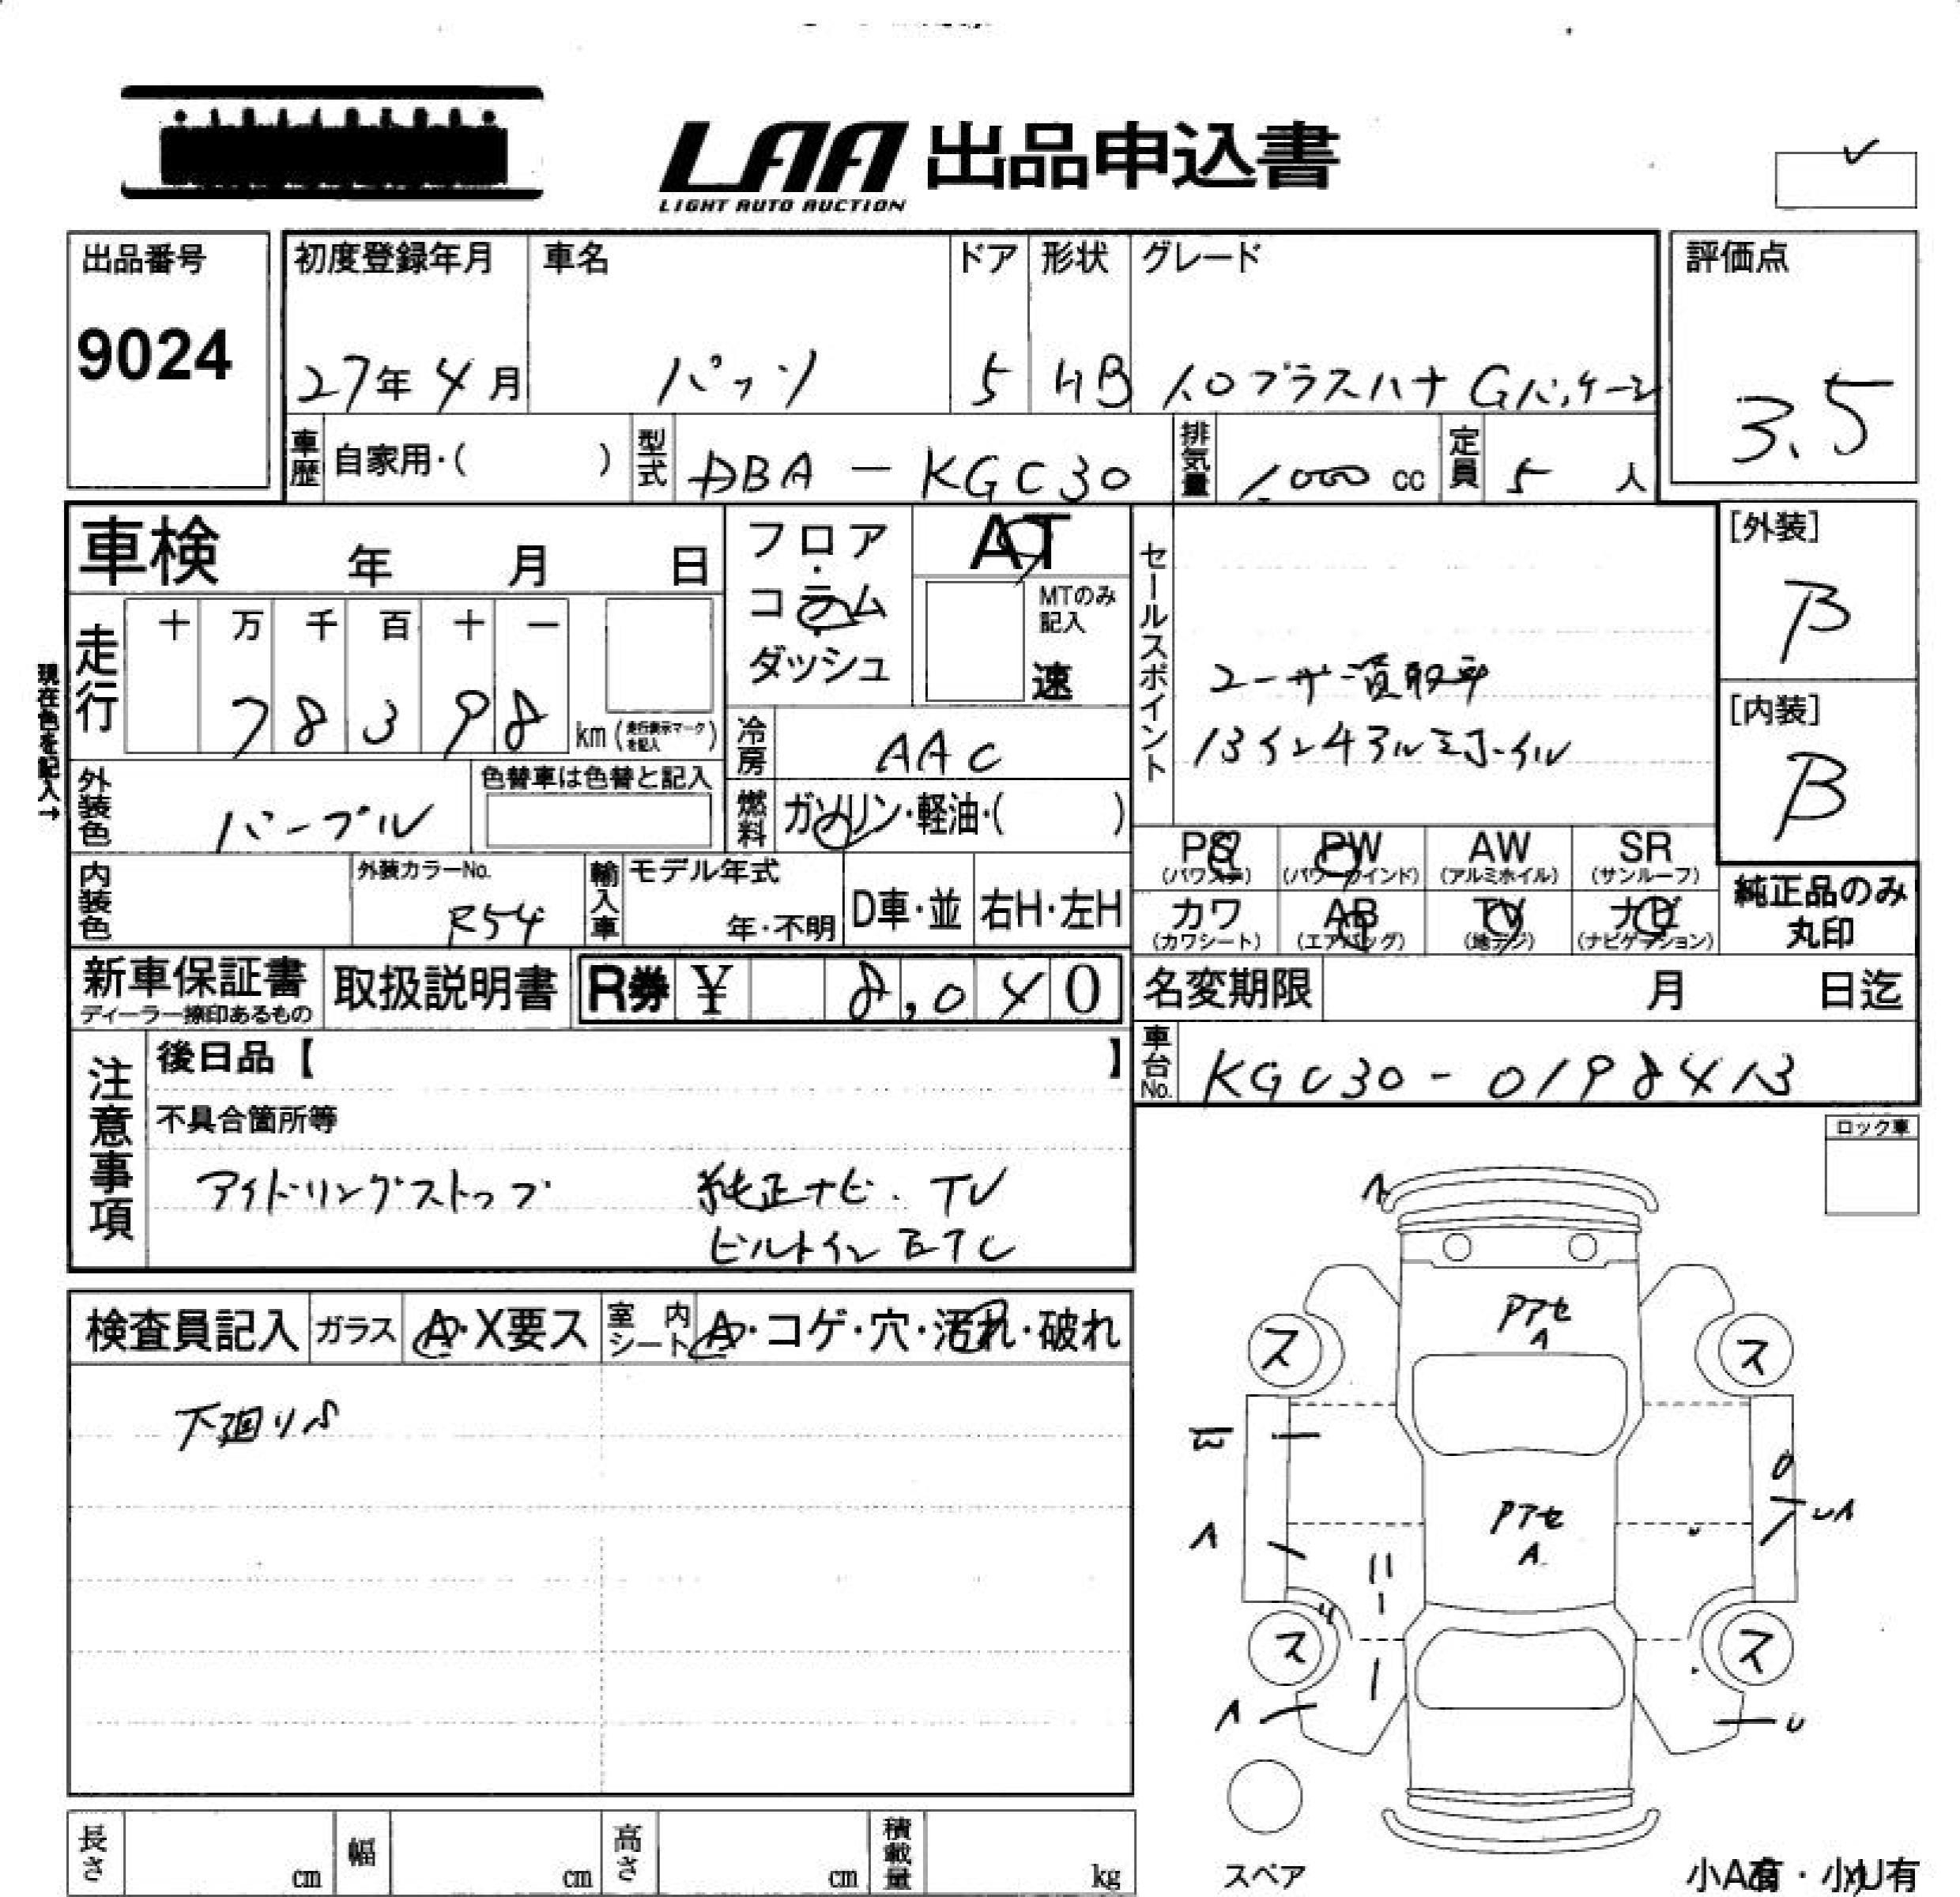 LAA 出品申込書
LIGHT AUTO AUCTION
出品番号
9024
初度登録年月
27年4月
車名
パッソ
ドア
5
形状
HB
グレード
1.0プラスハナ Gパッケージ
評価点
3.5
車歴
自家用・( )
型式
DBA - KGC30
排気量
1,000 cc
定員
5 人
車検 年 月 日
フロア・コラム・ダッシュ
AT
MTのみ記入
速
セールスポイント
ユーザー買取車
13インチアルミホイル
[外装]
B
[内装]
B
現在色を記入→
走行
十 万 千 百 十 一
7 8 3 9 8
km (走行表示マークを記入)
冷房
AAC
外装色
パープル
色替車は色替と記入
燃料
ガソリン・軽油・( )
内装色
外装カラーNo.
R54
輸入車
モデル年式
年・不明
D車・並
右H・左H
PS (パワステ)
PW (パワーウインド)
AW (アルミホイル)
SR (サンルーフ)
カワ (カワシート)
AB (エアバッグ)
TV (地デジ)
ナビ (ナビゲーション)
純正品のみ丸印
新車保証書
ディーラー捺印あるもの
取扱説明書
R券 ¥ 8,040
名変期限 月 日迄
車台No.
KGC30-0198413
注意事項
後日品【 】
不具合箇所等
アイドリングストップ 純正ナビ. TV
ビルトインETC
ロック車
検査員記入
ガラス
A・X要ス
室内シート
A・コゲ・穴・汚れ・破れ
下廻りS
A
PアセA
ス
ス
PアセA
A
UA
ス
ス
A
U
スペア
小A有・小U有
長さ cm
幅 cm
高さ cm
積載量 kg